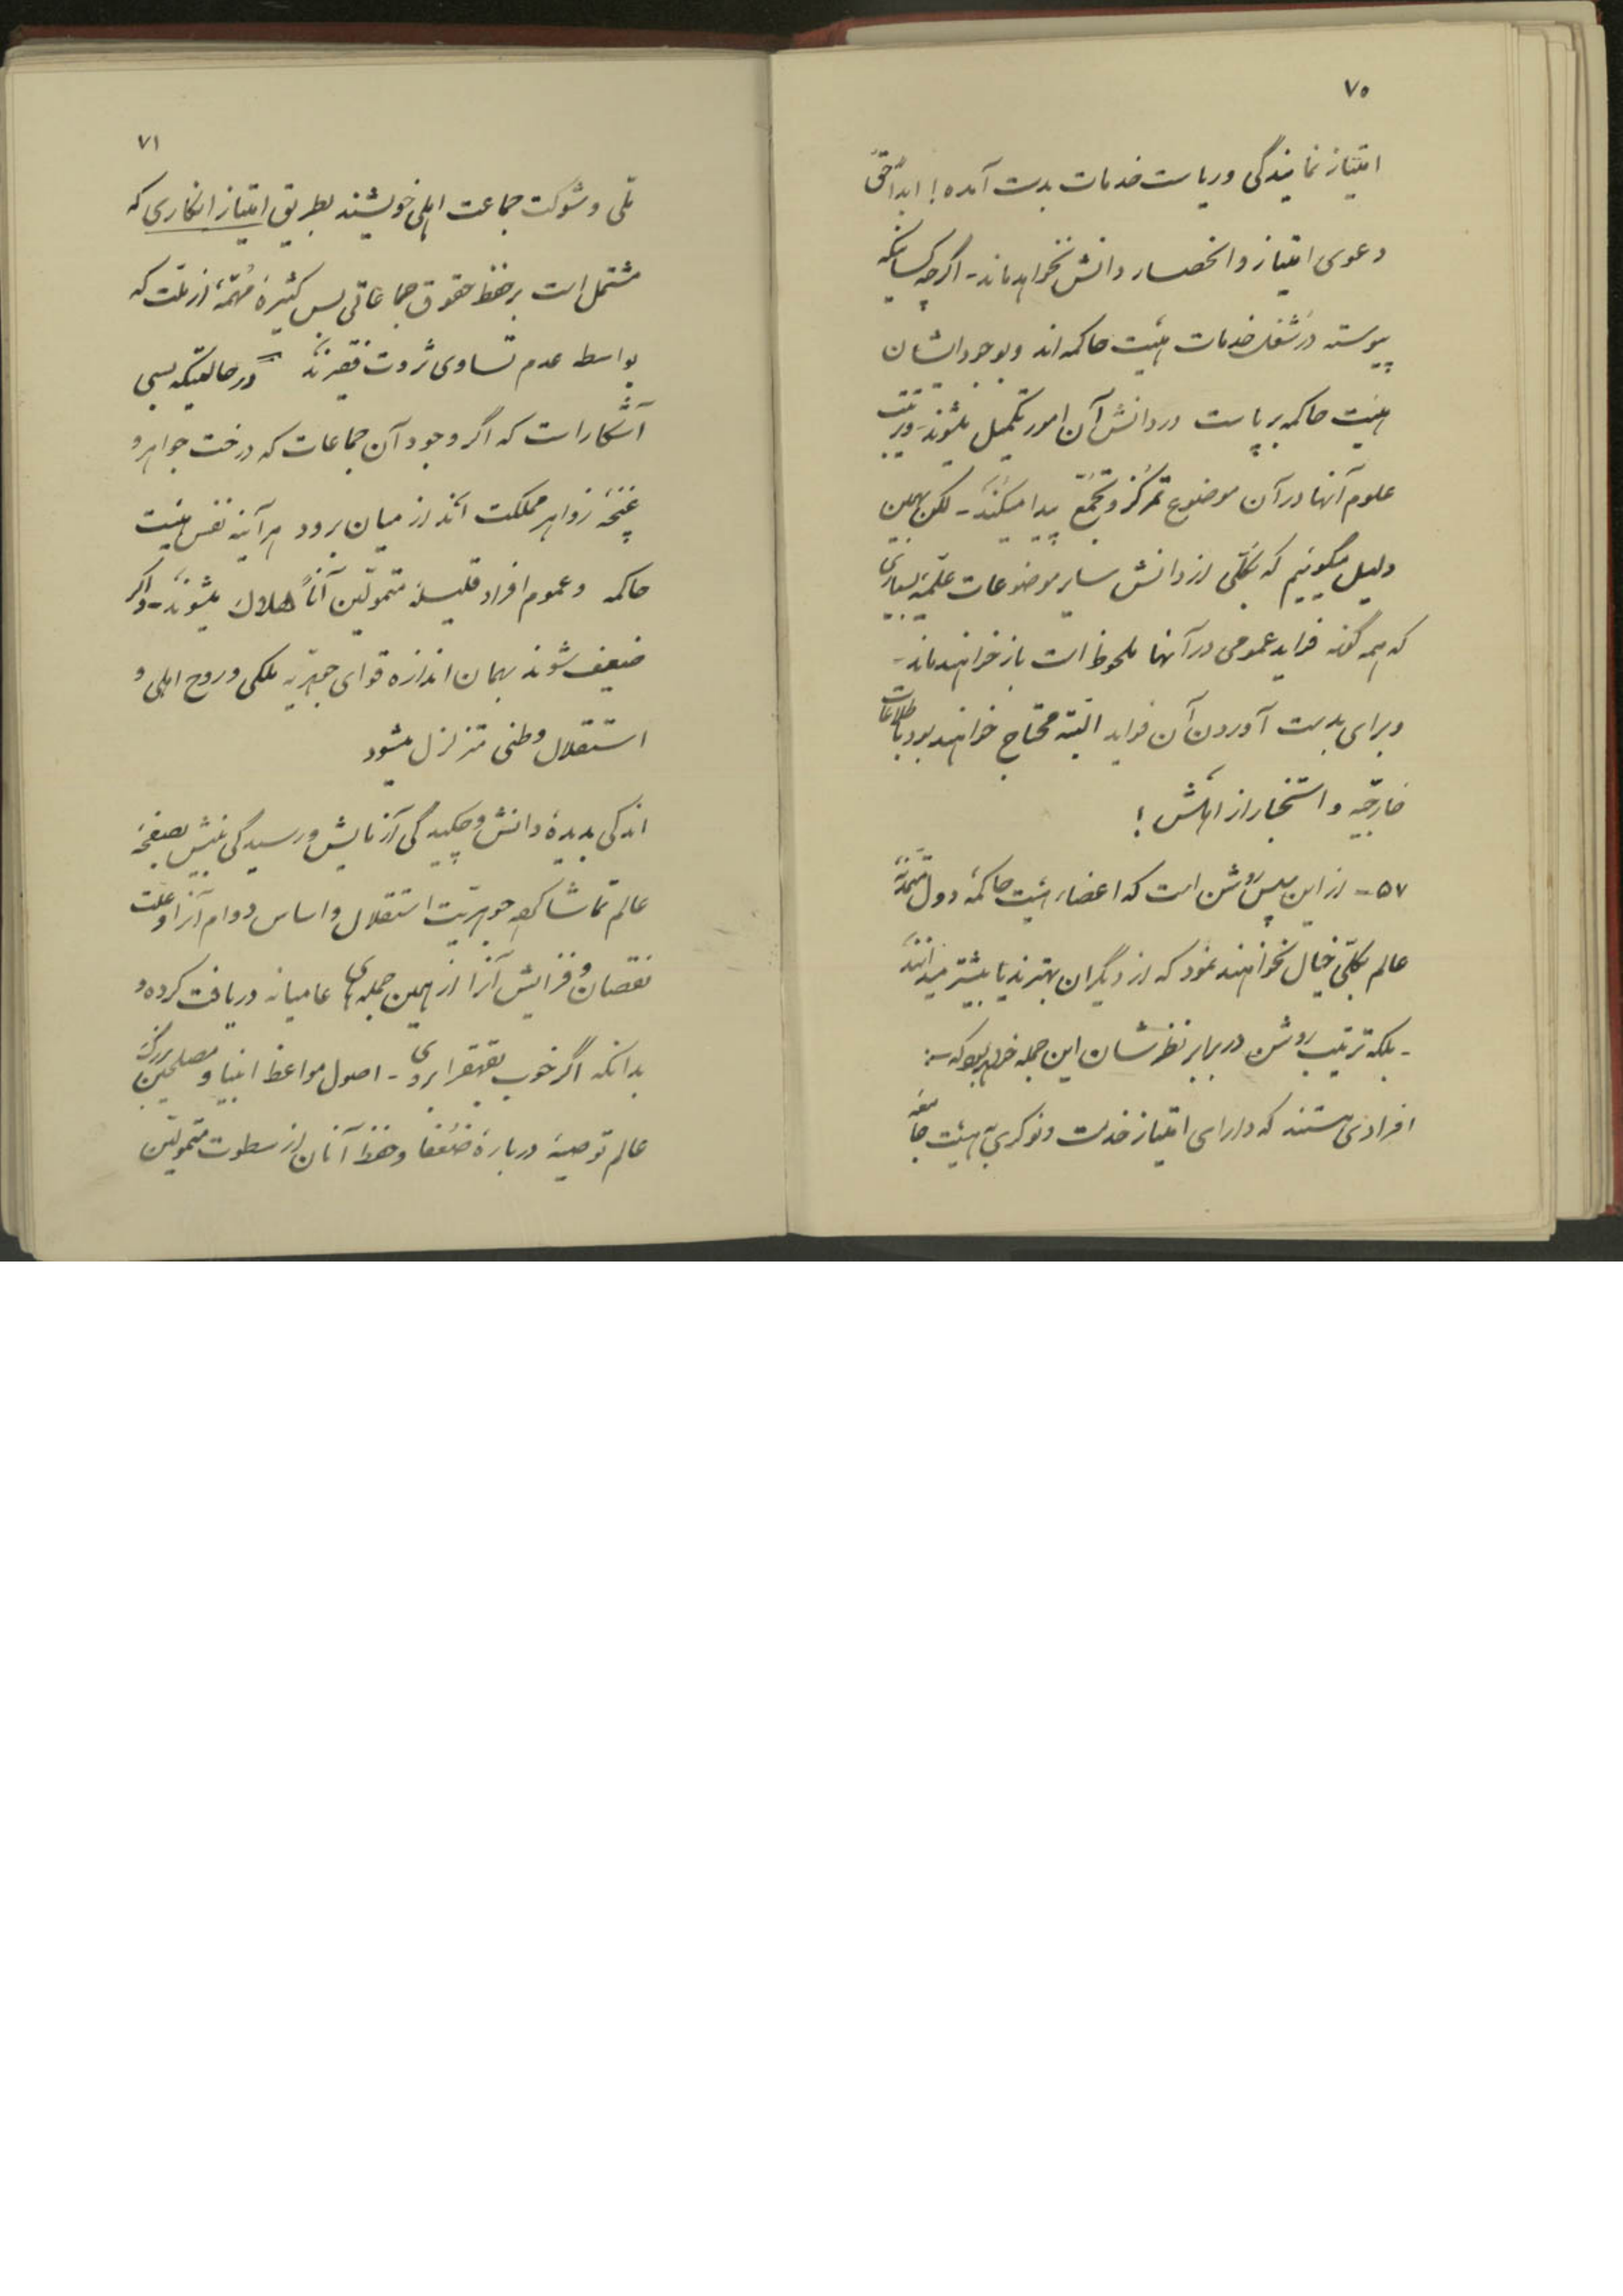 ۷۰
امتیاز نمایندگی و ریاست خدمات بدست آمده! ابداً حق
دعوی امتیاز و انحصار دانش نخواهد ماند - اگرچه کسانیکه
پیوسته در شغل خدمات هیئت حاکمه اند و بوجود ایشان
هیئت حاکمه برپاست در دانش آن امور تکمیل میشوند -
علوم آنها در آن موضوع تمرکز و تجمّع پیدا میکند - لکن بهمین
دلیل میگوئیم که بکلّی از دانش سایر موضوعات علمیّه بسیاری
که همه گونه فواید عمومی در آنها ملحوظ است باز خواهند ماند -
و برای بدست آوردن آن فواید البته محتاج خواهند بود باطلاعات
خارجیّه و استخبار از اهلش!
۵۷ - از این پس روشن است که اعضاء هیئت حاکمهٔ دول متمدّنهٔ
عالم بکلّی خیال نخواهند نمود که از دیگران بهترند یا بیشتر میدانند
- بلکه ترتیب روشن در برابر نظرشان این جمله خواهد بود که :
افرادی هستند که دارای امتیاز خدمت و نوکری هیئت جامعهٔ
۷۱
ملی و شوکت جماعت اهلی خویشند بطریق امتیاز انکاری که
مشتمل است بر حفظ حقوق جماعاتی بس کثیرهٔ مهمّهٔ از ملت که
بواسطه عدم تساوی ثروت فقیرند در حالتیکه بسی
آشکار است که اگر وجود آن جماعات که درخت جواهر و
غنچهٔ زواهر مملکت اند از میان برود هرآینه نفس هیئت
حاکمه و عموم افراد قلیلهٔ متموّلین آناً هلاک میشوند - و اگر
ضعیف شوند بهمان اندازه قوای جوهریه ملکی و روح اهلی و
استقلال وطنی متزلزل میشود
اندکی بدیدهٔ دانش و چکیدگی آزمایش و رسیدگی بینش بصفحهٔ
عالم تماشا کن جوهریّت استقلال و اساس دوام آنرا و علت
نقصان و فزایش آنرا از همین جملهای عامیانه دریافت کرده و
بدانکه اگر خوب بقهقرا بروی - اصول مواعظ انبیا و مصلحین بزرگ
عالم توصیهٔ دربارهٔ ضُعفا و حفظ آنان از سطوت متموّلین